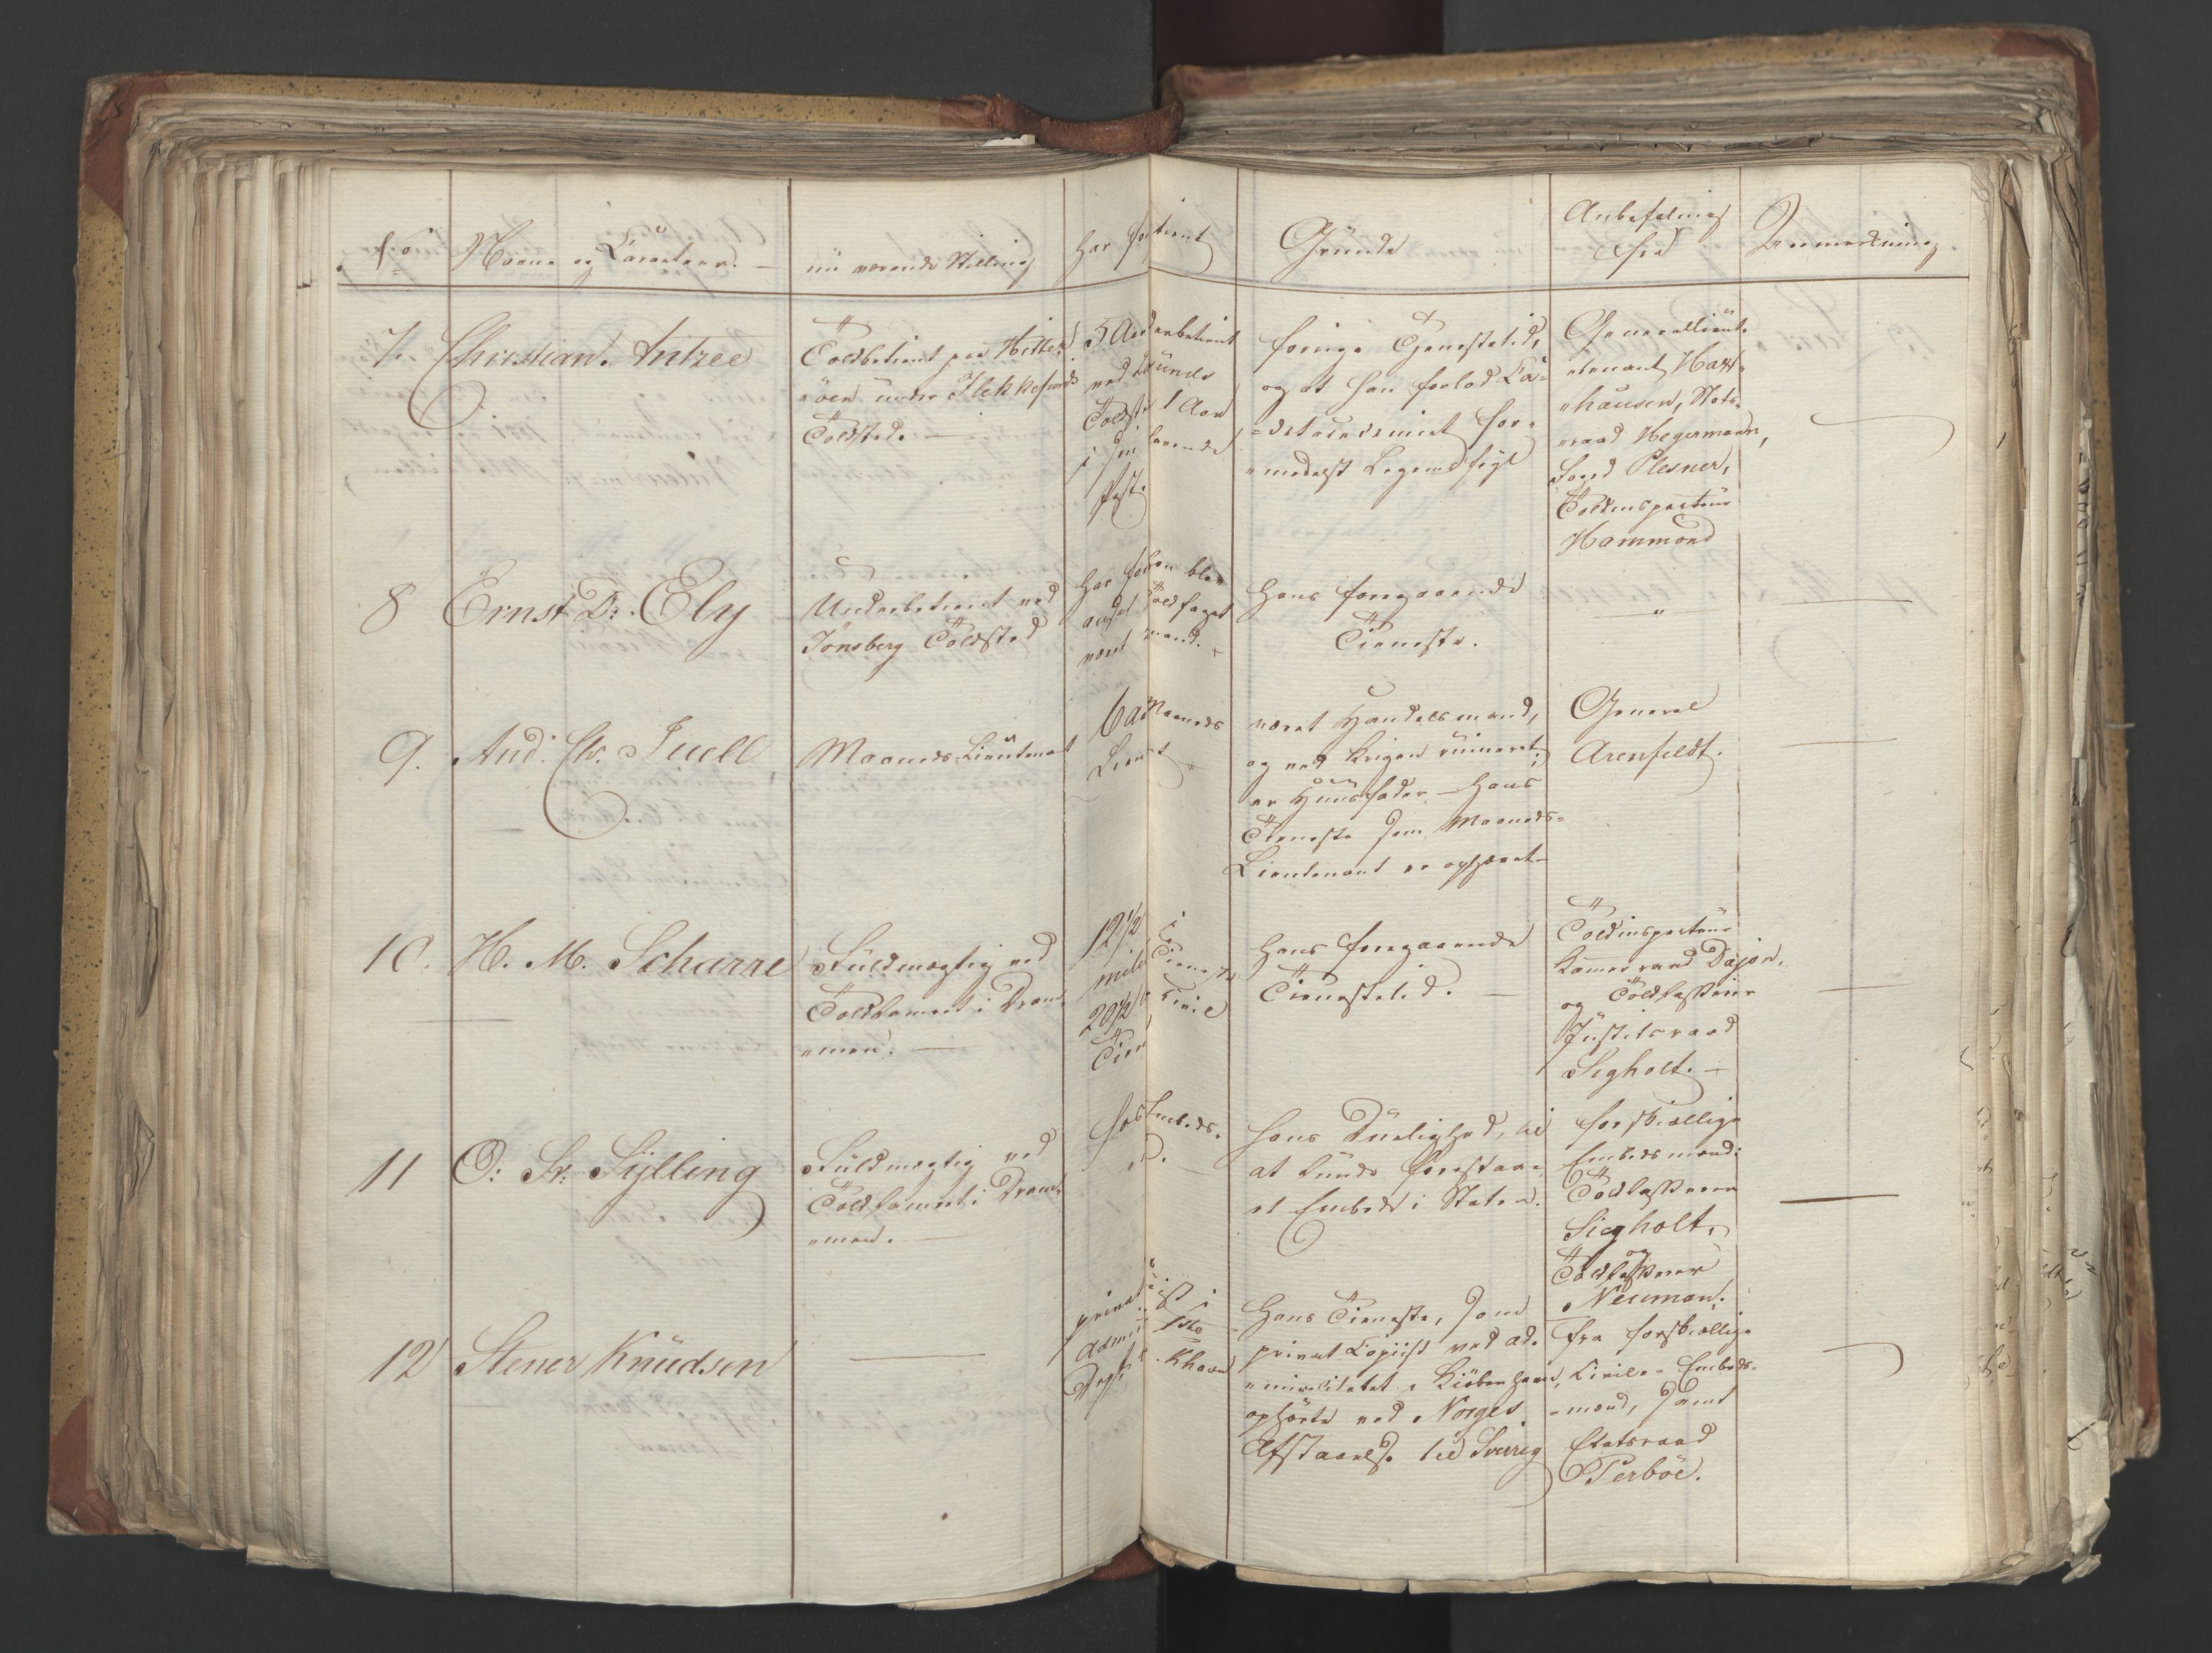 No Navn og Caracteer.
nu værende Stilling
har fortient
Grunde
Anbefaling
fra
Anmerkning.
7. Christian. Antzee
Toldbetient paa Hitter-
öen under Flekkefiords
Toldsted.
5 Aar
ved
Toldsted 1 Aar
i sin
Post.
forrige Tienestetid,
og at han forlod Ca-
detacademiet for-
medelst Legems feyl
Generallieut-
tenant Haxt-
hausen, Stats-
raad Hegermann,
Foged Plesner,
Toldinspecteur
Hammond
8 Ernst D: Ely
Underbetient ved
Tönsberg Toldsted
har siden blev
Toldfaget
været
Hans foregaaende
Tieneste.
"
9. And. Ch. Juell
Maaneds-Lieutenant
Maaneds
været Handelsmand,
og ved Krigen ruineret;
er Huusfader – Hans
Tieneste som Maaneds-
Lieutenant er ophævet –
General
Arenfeldt.
10. H. M. Scharre
Fuldmægtig ved
Toldkamret i Dram-
men.
12 1/2 i
mili Tieneste
20 1/2 Civil
Tien
Hans foregaaende
Tienestetid.
Toldinspecteur
Kammerraad Dajon,
og Toldkasserer
Justitsraad
Sigholt.
11 O: Fr: Sylling
Fuldmægtig ved
Toldkamret i Dram-
men.
hos Embeds-
Hans Duelighed, til
at kunde forestaae
et Embede i Staten.
forskiellige
Embedsmænd:
Toldkasserer
Siegholt,
og
Toldkasserer
Neuman.
12 Stener Knudsen
privat
1ste
Khavn
Hans Tieneste, som
privat Copiist ved ad-
miralitetet i Kiöbenhavn,
ophörte ved Norges
Afstaaelse til Sverrig
Fra forskiellige
Civile-Embeds-
mænd, samt
Etatsraad
Terböe.